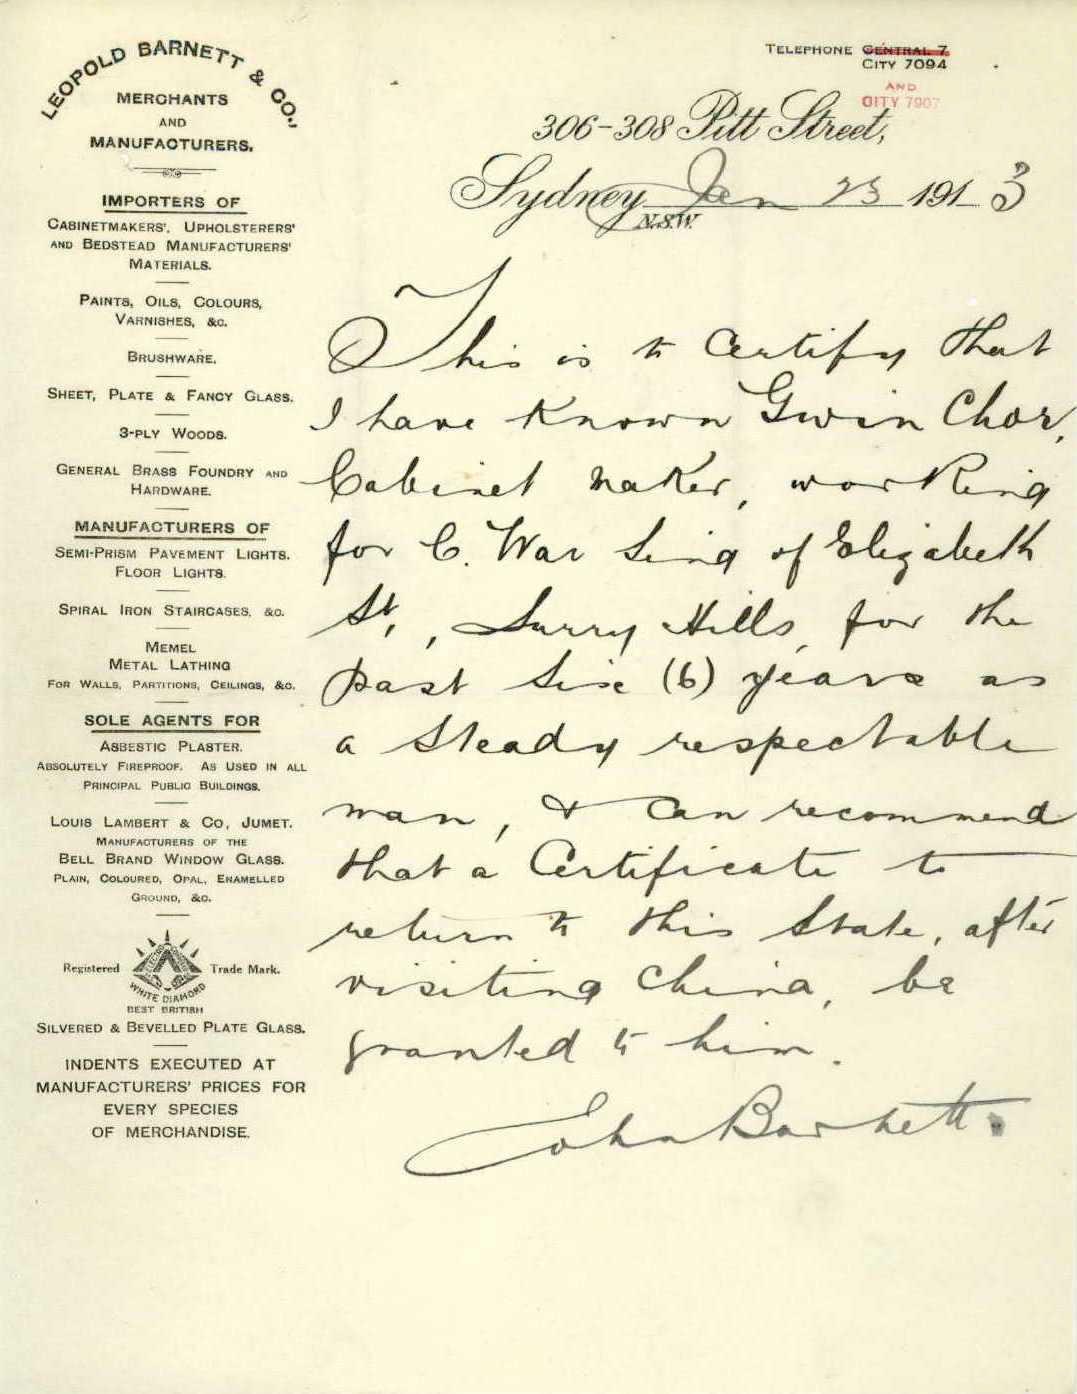 LEOPOLD BARNETT & CO.,
MERCHANTS
AND
MANUFACTURERS.
IMPORTERS OF
CABINETMAKERS', UPHOLSTERERS'
AND BEDSTEAD MANUFACTURERS'
MATERIALS.
PAINTS, OILS, COLOURS,
VARNISHES, &C.
BRUSHWARE.
SHEET, PLATE & FANCY GLASS.
3-PLY WOODS.
GENERAL BRASS FOUNDRY AND
HARDWARE.
MANUFACTURERS OF
SEMI-PRISM PAVEMENT LIGHTS.
FLOOR LIGHTS.
SPIRAL IRON STAIRCASES, &C.
MEMEL
METAL LATHING
FOR WALLS, PARTITIONS, CEILINGS, &C.
SOLE AGENTS FOR
ASBESTIC PLASTER.
ABSOLUTELY FIREPROOF. AS USED IN ALL
PRINCIPAL PUBLIC BUILDINGS.
LOUIS LAMBERT & CO, JUMET.
MANUFACTURERS OF THE
BELL BRAND WINDOW GLASS.
PLAIN, COLOURED, OPAL, ENAMELLED
GROUND, &C.
Registered Trade Mark.
WHITE DIAMOND
BEST BRITISH
SILVERED & BEVELLED PLATE GLASS.
INDENTS EXECUTED AT
MANUFACTURERS' PRICES FOR
EVERY SPECIES
OF MERCHANDISE.
TELEPHONE CENTRAL 7
CITY 7094
AND
CITY 7907
306-308 Pitt Street,
Sydney Jan 23 1913
N.S.W.
This is to certify that
I have known Gwin Chor,
Cabinet maker, working
for C. War Sing of Elizabeth
St., Surry Hills, for the
past six (6) years as
a steady respectable
man, & can recommend
that a Certificate to
return to this State, after
visiting China, be
granted to him.
John Barnett.